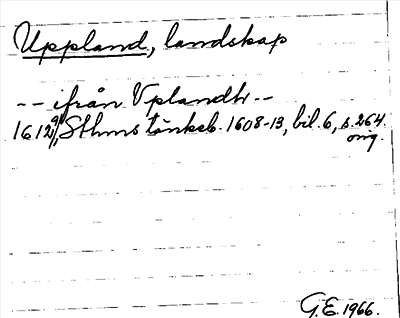 Uppland, landskap
-- ifrån Vplandh --
1612 9/1, Sthms tänkeb. 1608-13, bil. 6, s. 264.
orig.
G.E. 1966.